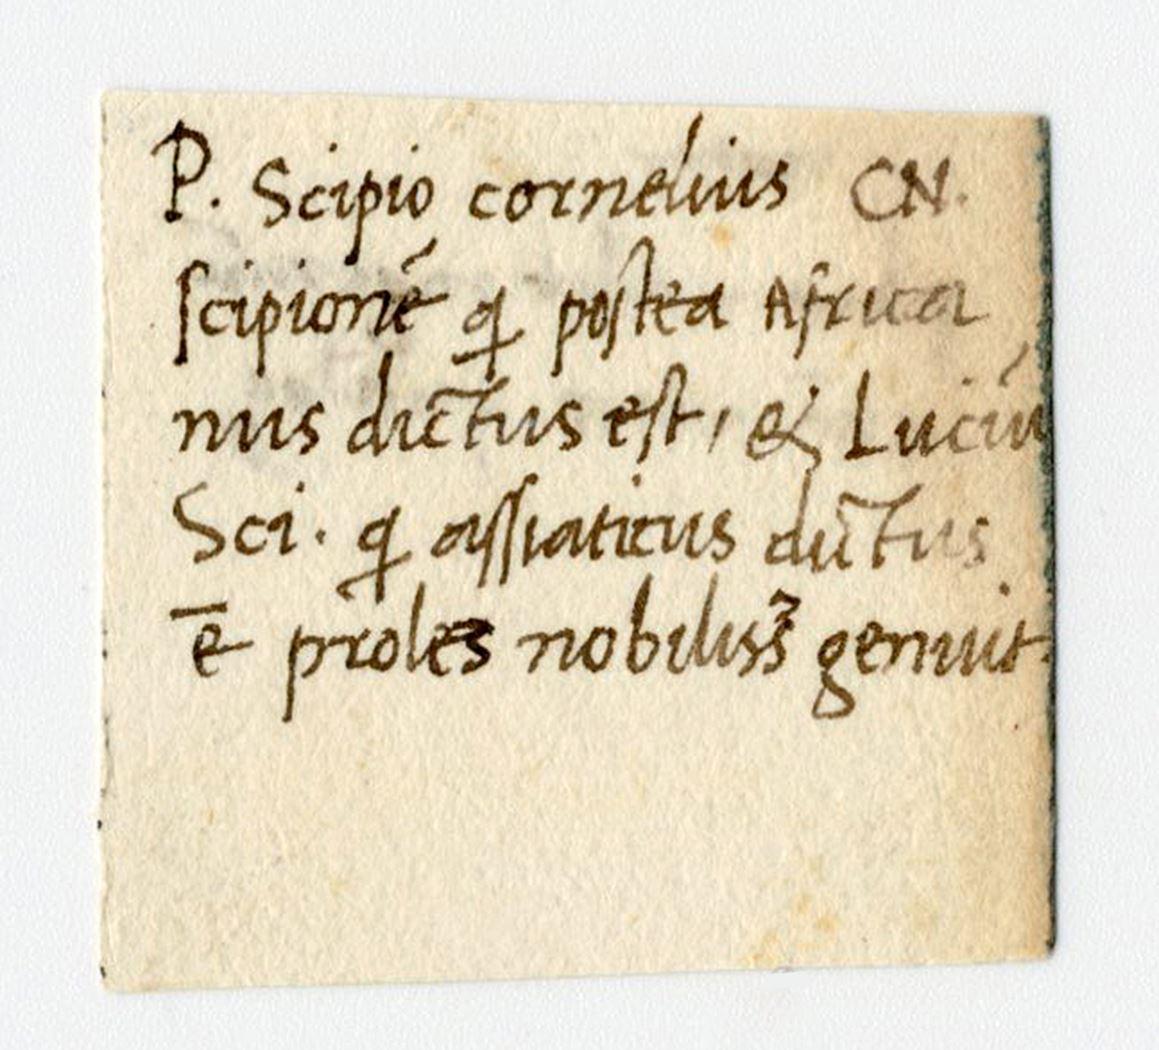 P. Scipio cornelius CN.
ſcipionē ꝗ poſtea Africa
nus dictus eſt, & Luciū
Sci. ꝗ aſſiaticus dictus
ē proles nobilissꝫ genuit.